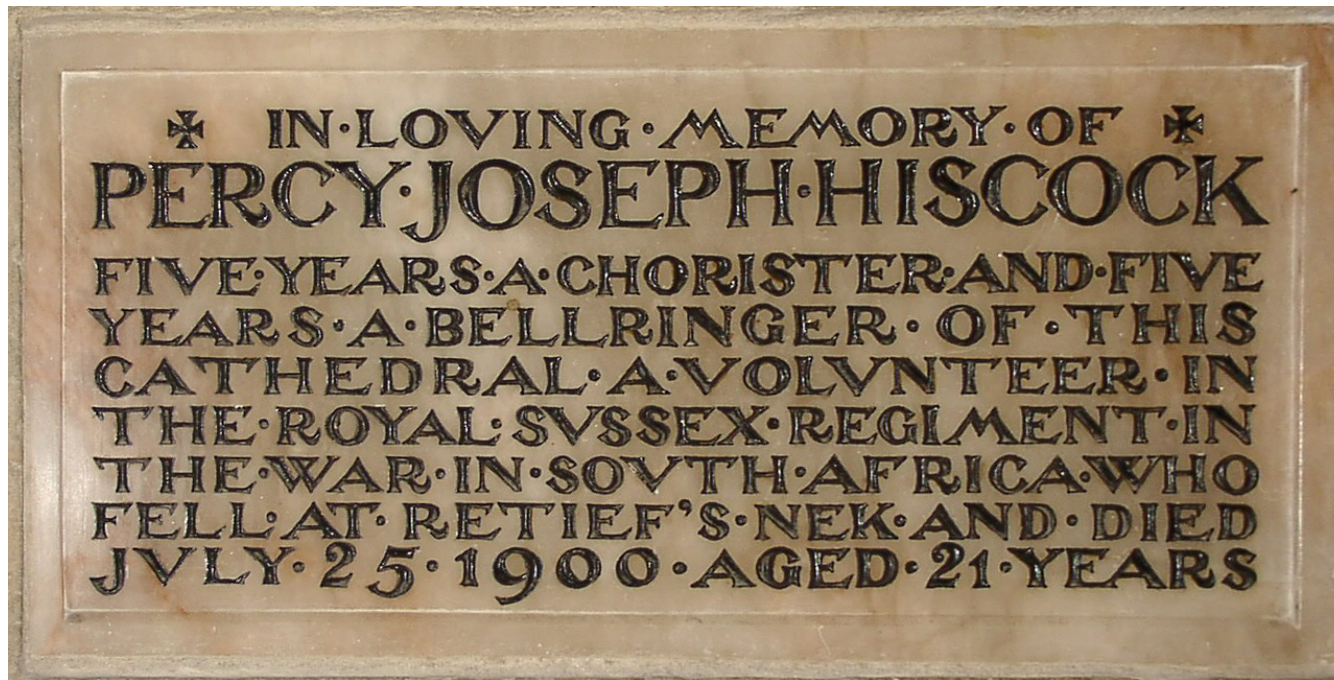 ✠ IN·LOVING·MEMORY·OF ✠
PERCY·JOSEPH·HISCOCK
FIVE·YEARS·A·CHORISTER·AND·FIVE
YEARS·A·BELLRINGER·OF·THIS
CATHEDRAL·A·VOLVNTEER·IN
THE·ROYAL·SVSSEX·REGIMENT·IN
THE·WAR·IN·SOVTH·AFRICA·WHO
FELL·AT·RETIEF'S·NEK·AND·DIED
JVLY·25·1900·AGED·21·YEARS